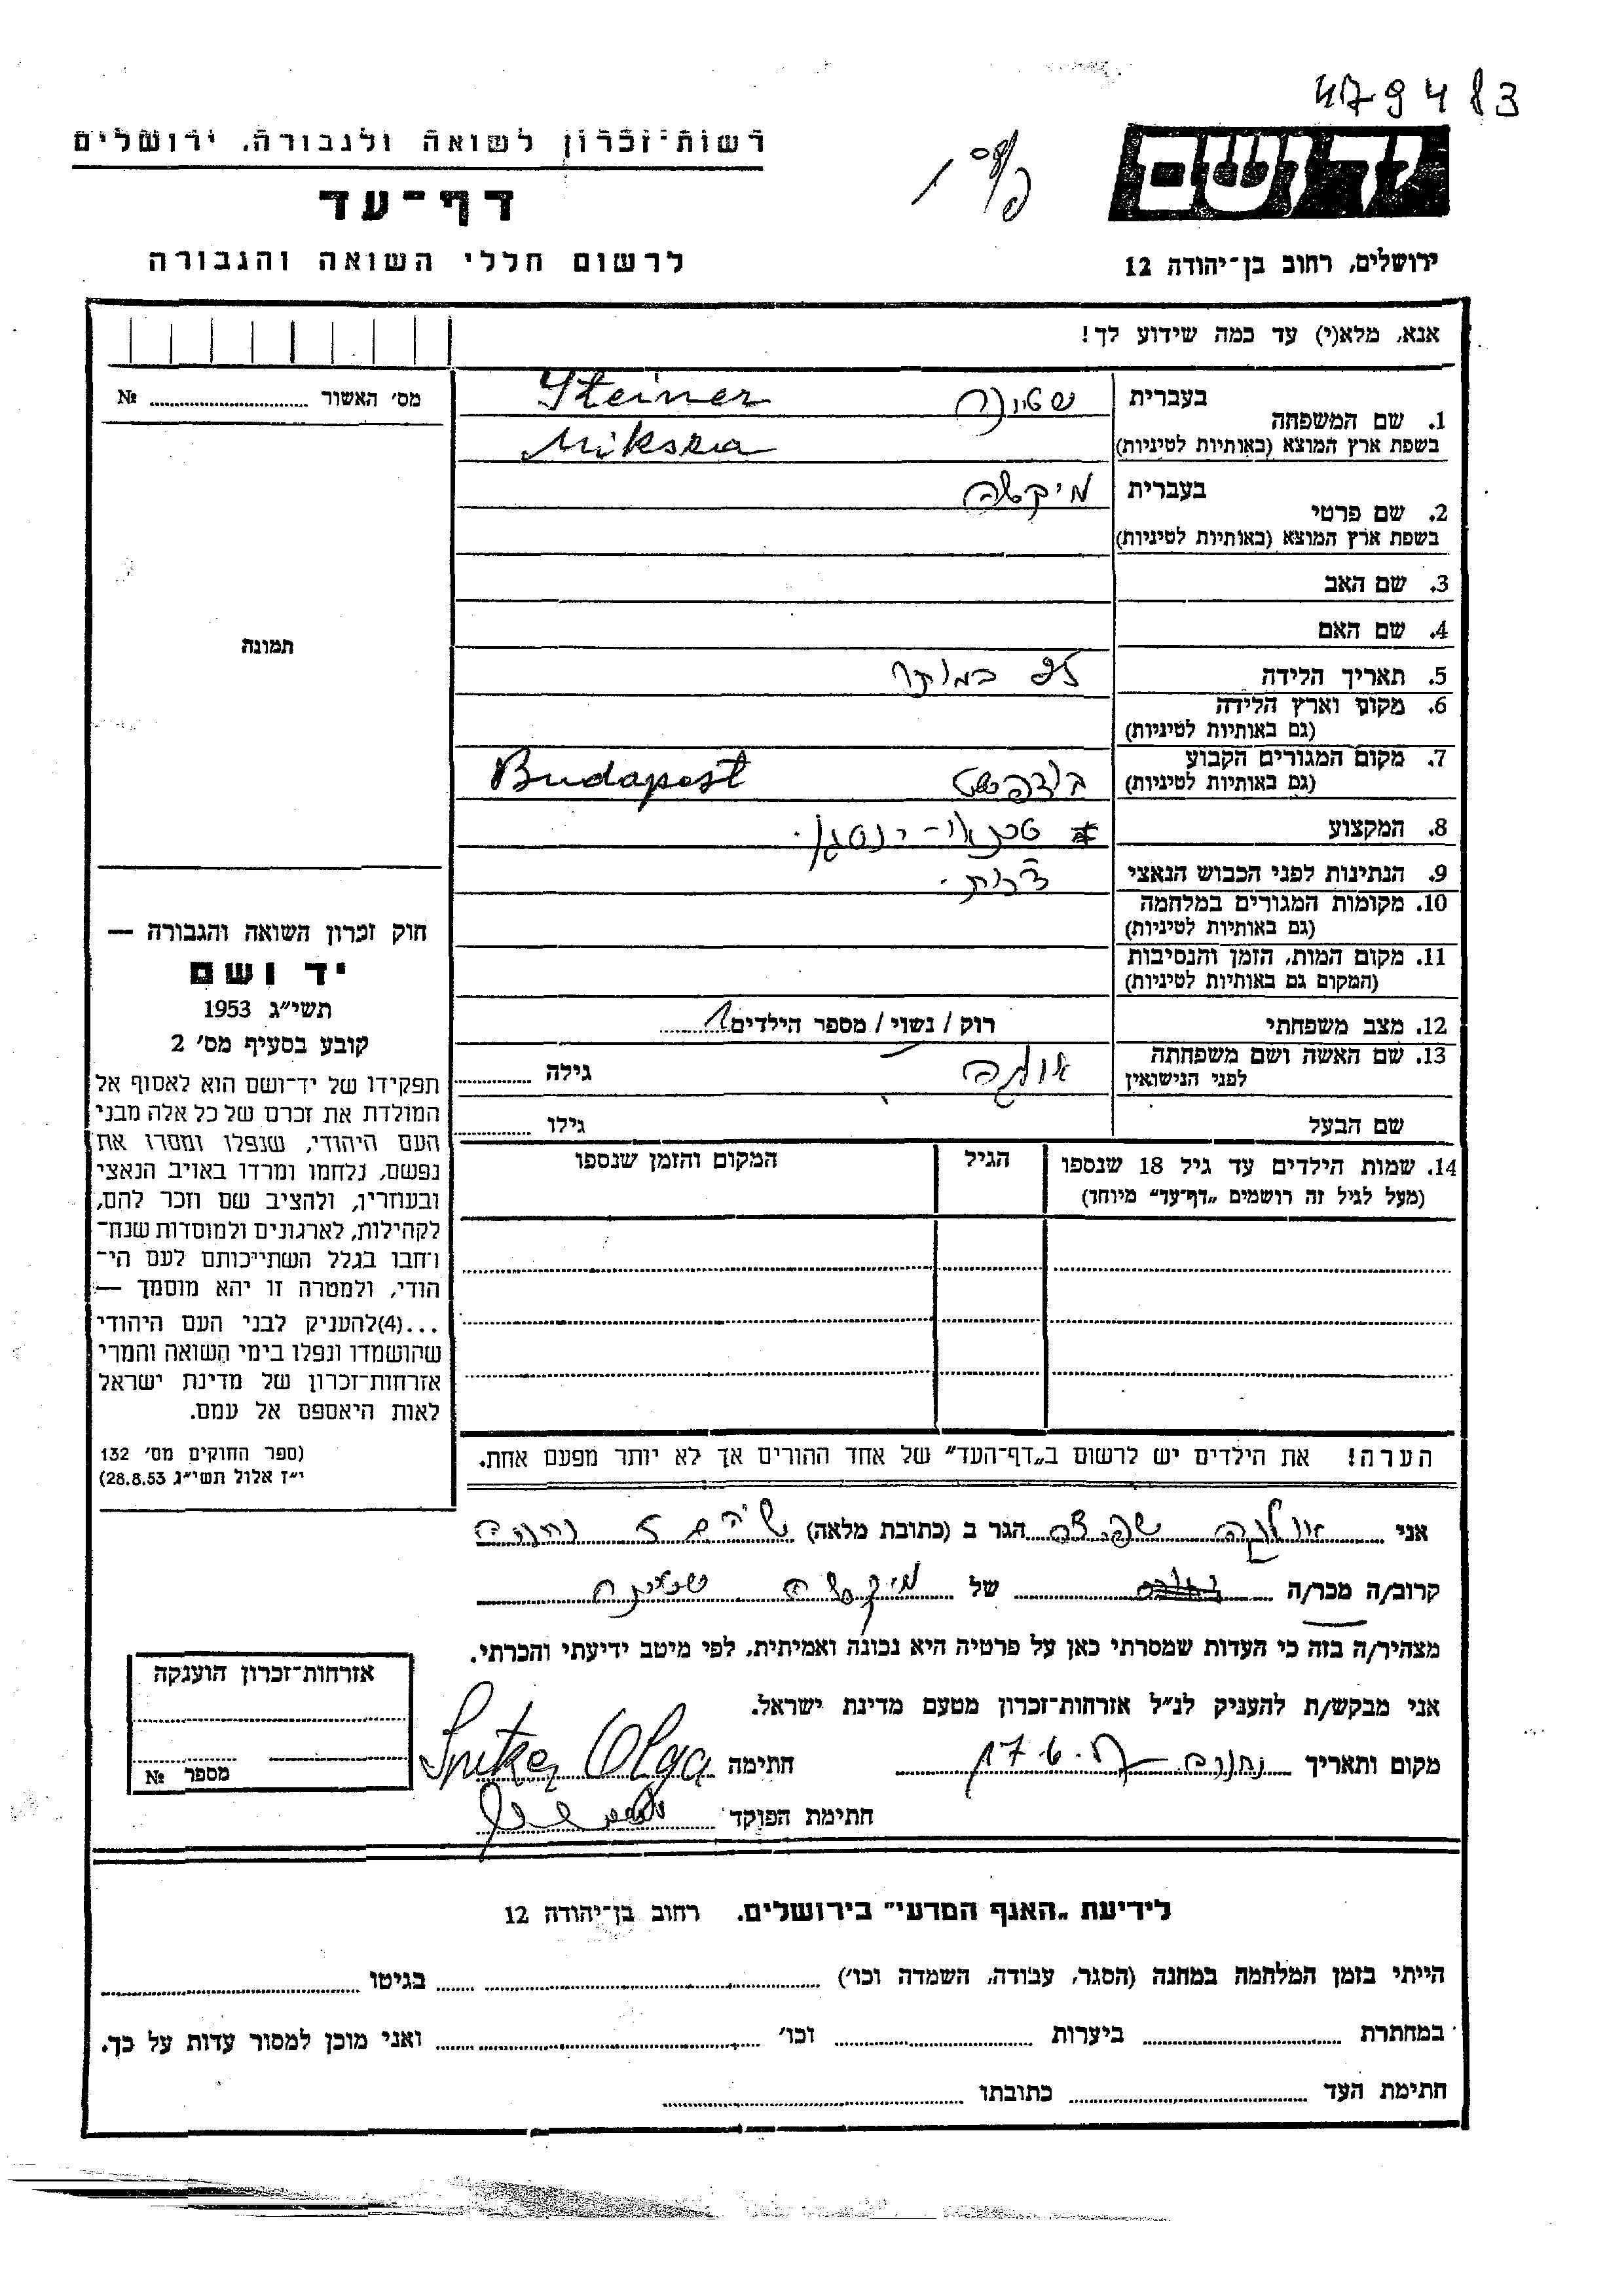 479483
רשות־זכרון לשואה ולגבורה, ירושלים
דף־עד
לרשום חללי השואה והגבורה
יד ושם
ירושלים, רחוב בן־יהודה 12
אנא, מלא(י) עד כמה שידוע לך!
מס׳ האשור № 
1. שם המשפחה
בעברית
בשפת ארץ המוצא (באותיות לטיניות)
שטינר Steiner
Miksza
2. שם פרטי
בעברית
בשפת ארץ המוצא (באותיות לטיניות)
מיקשה
3. שם האב
4. שם האם
5. תאריך הלידה
6. מקום וארץ הלידה
(גם באותיות לטיניות)
7. מקום המגורים הקבוע
(גם באותיות לטיניות)
Budapest
8. המקצוע
9. הנתינות לפני הכבוש הנאצי
10. מקומות המגורים במלחמה
(גם באותיות לטיניות)
11. מקום המות, הזמן והנסיבות
(המקום גם באותיות לטיניות)
12. מצב משפחתי
רוק / נשוי / מספר הילדים 1
13. שם האשה ושם משפחתה
לפני הנישואין
גילה
שם הבעל
גילו
14. שמות הילדים עד גיל 18 שנספו
(מעל לגיל זה רושמים „דף־עד״ מיוחד)
הגיל
המקום והזמן שנספו
הערה! את הילדים יש לרשום ב„דף־העד״ של אחד ההורים אך לא יותר מפעם אחת.
תמונה
חוק זכרון השואה והגבורה —
יד ושם
תשי״ג 1953
קובע בסעיף מס׳ 2
תפקידו של יד־ושם הוא לאסוף אל
המולדת את זכרם של כל אלה מבני
העם היהודי, שנפלו ומסרו את
נפשם, נלחמו ומרדו באויב הנאצי
ובעוזריו, ולהציב שם וזכר להם,
לקהילות, לארגונים ולמוסדות שנח־
רחבו בגלל השתייכותם לעם הי־
הודי, ולמטרה זו יהא מוסמך —
...(4)להעניק לבני העם היהודי
שהושמדו ונפלו בימי השואה והמרי
אזרחות־זכרון של מדינת ישראל
לאות היאספם אל עמם.
(ספר החוקים מס׳ 132
י״ז אלול תשי״ג 28.8.53)
אני אולגה הגר ב (כתובת מלאה)
קרוב/ה מכר/ה של מיקשה שטינר
מצהיר/ה בזה כי העדות שמסרתי כאן על פרטיה היא נכונה ואמיתית, לפי מיטב ידיעתי והכרתי.
אני מבקש/ת להעניק לנ״ל אזרחות־זכרון מטעם מדינת ישראל.
מקום ותאריך חתימה Spitzer Olga
חתימת הפוקד
אזרחות־זכרון הוענקה
מספר №
לידיעת „האגף המדעי״ בירושלים. רחוב בן־יהודה 12
הייתי בזמן המלחמה במחנה (הסגר, עבודה, השמדה וכו׳) בגיטו
במחתרת ביערות וכו׳ ואני מוכן למסור עדות על כך.
חתימת העד כתובתו